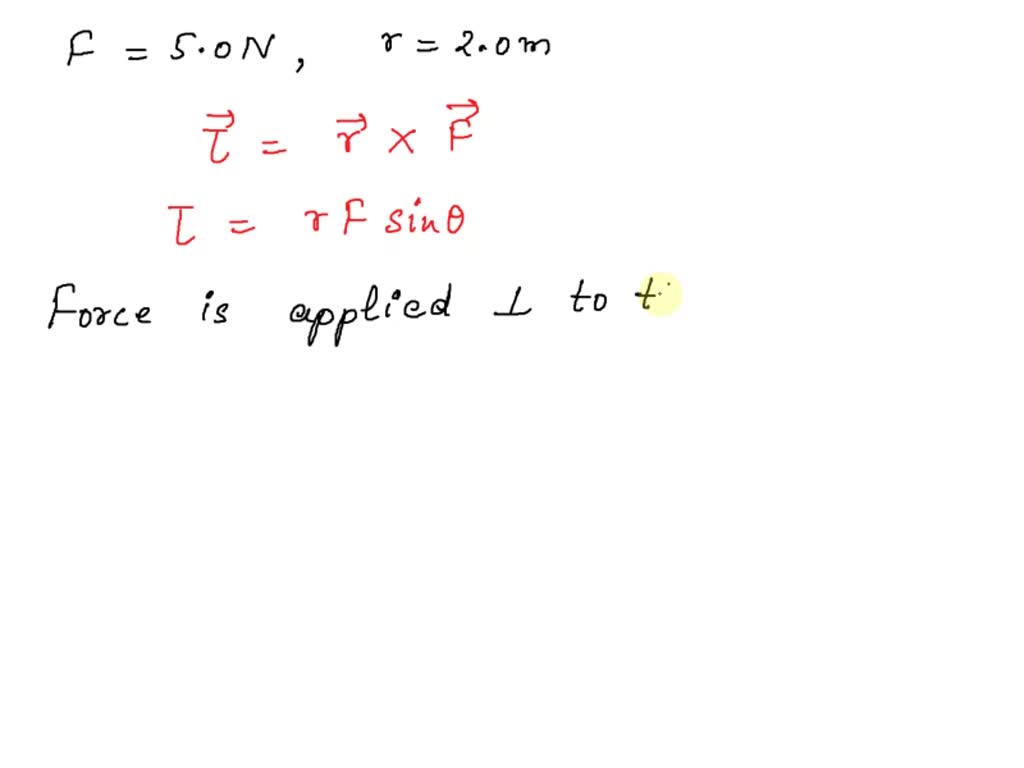 F = 5.0 N, r = 2.0 m
τ⃗ = r⃗ × F⃗
τ = r F sinθ
Force is applied ⊥ to t